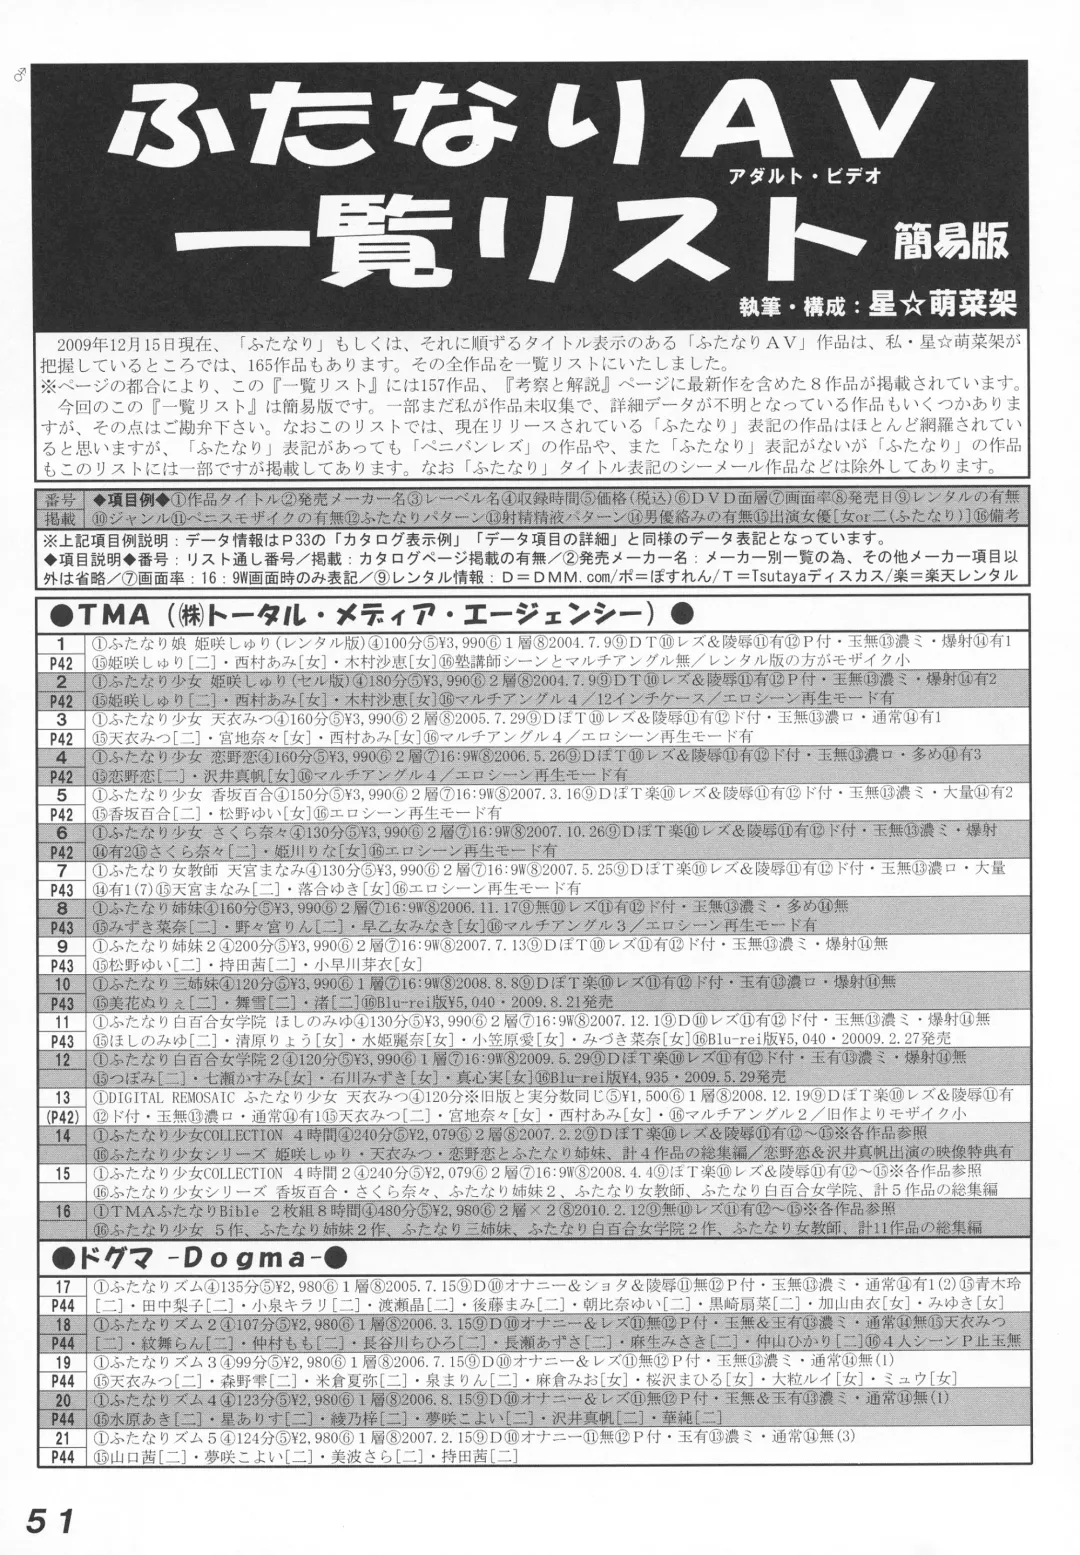 ♂
ふたなりAV
アダルト・ビデオ
一覧リスト 簡易版
執筆・構成：星☆萌菜架
2009年12月15日現在、「ふたなり」もしくは、それに順ずるタイトル表示のある「ふたなりＡＶ」作品は、私・星☆萌菜架が
把握しているところでは、165作品もあります。その全作品を一覧リストにいたしました。
※ページの都合により、この『一覧リスト』には157作品、『考察と解説』ページに最新作を含めた８作品が掲載されています。
今回のこの『一覧リスト』は簡易版です。一部まだ私が作品未収集で、詳細データが不明となっている作品もいくつかありま
すが、その点はご勘弁下さい。なおこのリストでは、現在リリースされている「ふたなり」表記の作品はほとんど網羅されてい
ると思いますが、「ふたなり」表記があっても「ペニバンレズ」の作品や、また「ふたなり」表記がないが「ふたなり」の作品
もこのリストには一部ですが掲載してあります。なお「ふたなり」タイトル表記のシーメール作品などは除外してあります。
番号 ◆項目例◆①作品タイトル②発売メーカー名③レーベル名④収録時間⑤価格(税込)⑥ＤＶＤ面層⑦画面率⑧発売日⑨レンタルの有無
掲載 ⑩ジャンル⑪ペニスモザイクの有無⑫ふたなりパターン⑬射精精液パターン⑭男優絡みの有無⑮出演女優[女or二(ふたなり)]⑯備考
※上記項目例説明：データ情報はＰ33の「カタログ表示例」「データ項目の詳細」と同様のデータ表記となっています。
◆項目説明◆番号：リスト通し番号／掲載：カタログページ掲載の有無／②発売メーカー名：メーカー別一覧の為、その他メーカー項目以
外は省略／⑦画面率：16：9W画面時のみ表記／⑨レンタル情報：Ｄ＝ＤＭＭ.com/ポ＝ぽすれん/Ｔ＝Tsutayaディスカス/楽＝楽天レンタル
●TMA（㈱トータル・メディア・エージェンシー）●
1 ①ふたなり娘 姫咲しゅり(レンタル版)④100分⑤¥3,990⑥１層⑧2004.7.9⑨ＤＴ⑩レズ＆陵辱⑪有⑫Ｐ付・玉無⑬濃ミ・爆射⑭有1
P42 ⑮姫咲しゅり[二]・西村あみ[女]・木村沙恵[女]⑯塾講師シーンとマルチアングル無／レンタル版の方がモザイク小
2 ①ふたなり少女 姫咲しゅり(セル版)④180分⑤¥3,990⑥２層⑧2004.7.9⑨ＤＴ⑩レズ＆陵辱⑪有⑫Ｐ付・玉無⑬濃ミ・爆射⑭有2
P42 ⑮姫咲しゅり[二]・西村あみ[女]・木村沙恵[女]⑯マルチアングル４／12インチケース／エロシーン再生モード有
3 ①ふたなり少女 天衣みつ④160分⑤¥3,990⑥２層⑧2005.7.29⑨ＤぽＴ⑩レズ＆陵辱⑪有⑫ド付・玉無⑬濃ロ・通常⑭有1
P42 ⑮天衣みつ[二]・宮地奈々[女]・西村あみ[女]⑯マルチアングル４／エロシーン再生モード有
4 ①ふたなり少女 恋野恋④160分⑤¥3,990⑥２層⑦16:9W⑧2006.5.26⑨ＤぽＴ⑩レズ＆陵辱⑪有⑫ド付・玉無⑬濃ロ・多め⑭有3
P42 ⑮恋野恋[二]・沢井真帆[女]⑯マルチアングル４／エロシーン再生モード有
5 ①ふたなり少女 香坂百合④150分⑤¥3,990⑥２層⑦16:9W⑧2007.3.16⑨ＤぽＴ楽⑩レズ＆陵辱⑪有⑫ド付・玉無⑬濃ミ・大量⑭有2
P42 ⑮香坂百合[二]・松野ゆい[女]⑯エロシーン再生モード有
6 ①ふたなり少女 さくら奈々④130分⑤¥3,990⑥２層⑦16:9W⑧2007.10.26⑨ＤぽＴ楽⑩レズ＆陵辱⑪有⑫ド付・玉無⑬濃ミ・爆射
P42 ⑭有2⑮さくら奈々[二]・姫川りな[女]⑯エロシーン再生モード有
7 ①ふたなり女教師 天宮まなみ④130分⑤¥3,990⑥２層⑦16:9W⑧2007.5.25⑨ＤぽＴ楽⑩レズ＆陵辱⑪有⑫ド付・玉無⑬濃ロ・大量
P43 ⑭有1(7)⑮天宮まなみ[二]・落合ゆき[女]⑯エロシーン再生モード有
8 ①ふたなり姉妹④160分⑤¥3,990⑥２層⑦16:9W⑧2006.11.17⑨無⑩レズ⑪有⑫ド付・玉無⑬濃ミ・多め⑭無
P43 ⑮みずき菜奈[二]・野々宮りん[二]・早乙女みなき[女]⑯マルチアングル３／エロシーン再生モード有
9 ①ふたなり姉妹２④200分⑤¥3,990⑥２層⑦16:9W⑧2007.7.13⑨ＤぽＴ⑩レズ⑪有⑫ド付・玉無⑬濃ミ・爆射⑭無
P43 ⑮松野ゆい[二]・持田茜[二]・小早川芽衣[女]
10 ①ふたなり三姉妹④120分⑤¥3,990⑥１層⑦16:9W⑧2008.8.8⑨ＤぽＴ楽⑩レズ⑪有⑫ド付・玉有⑬濃ロ・爆射⑭無
P43 ⑮美花ぬりぇ[二]・舞雪[二]・渚[二]⑯Blu-rei版¥5,040・2009.8.21発売
11 ①ふたなり白百合女学院 ほしのみゆ④130分⑤¥3,990⑥２層⑦16:9W⑧2007.12.1⑨Ｄ⑩レズ⑪有⑫ド付・玉無⑬濃ミ・爆射⑭無
P43 ⑮ほしのみゆ[二]・清原りょう[女]・水姫麗奈[女]・小笠原愛[女]・みづき菜奈[女]⑯Blu-rei版¥5,040・20009.2.27発売
12 ①ふたなり白百合女学院２④120分⑤¥3,990⑥１層⑦16:9W⑧2009.5.29⑨ＤぽＴ楽⑩レズ⑪有⑫ド付・玉有⑬濃ミ・爆射⑭無
⑮つぼみ[二]・七瀬かすみ[女]・石川みずき[女]・真心実[女]⑯Blu-rei版¥4,935・2009.5.29発売
13 ①DIGITAL REMOSAIC ふたなり少女 天衣みつ④120分※旧版と実分数同じ⑤¥1,500⑥１層⑧2008.12.19⑨ＤぽＴ楽⑩レズ＆陵辱⑪有
(P42) ⑫ド付・玉無⑬濃ロ・通常⑭有1⑮天衣みつ[二]・宮地奈々[女]・西村あみ[女]・⑯マルチアングル２／旧作よりモザイク小
14 ①ふたなり少女COLLECTION ４時間④240分⑤¥2,079⑥２層⑧2007.2.2⑨ＤぽＴ楽⑩レズ＆陵辱⑪有⑫～⑮※各作品参照
⑯ふたなり少女シリーズ 姫咲しゅり・天衣みつ・恋野恋とふたなり姉妹、計４作品の総集編／恋野恋＆沢井真帆出演の映像特典有
15 ①ふたなり少女COLLECTION ４時間２④240分⑤¥2,079⑥２層⑦16:9W⑧2008.4.4⑨ぽＴ楽⑩レズ＆陵辱⑪有⑫～⑮※各作品参照
⑯ふたなり少女シリーズ 香坂百合・さくら奈々、ふたなり姉妹２、ふたなり女教師、ふたなり白百合女学院、計５作品の総集編
16 ①ＴＭＡふたなりBible ２枚組８時間④480分⑤¥2,980⑥２層×２⑧2010.2.12⑨無⑩レズ⑪有⑫～⑮※各作品参照
⑯ふたなり少女 ５作、ふたなり姉妹２作、ふたなり三姉妹、ふたなり白百合女学院２作、ふたなり女教師、計11作品の総集編
●ドグマ -Dogma-●
17 ①ふたなりズム④135分⑤¥2,980⑥１層⑧2005.7.15⑨Ｄ⑩オナニー＆ショタ＆陵辱⑪無⑫Ｐ付・玉無⑬濃ミ・通常⑭有1(2)⑮青木玲
P44 [二]・田中梨子[二]・小泉キラリ[二]・渡瀬晶[二]・後藤まみ[二]・朝比奈ゆい[二]・黒崎扇菜[二]・加山由衣[女]・みゆき[女]
18 ①ふたなりズム２④107分⑤¥2,980⑥１層⑧2006.3.15⑨Ｄ⑩オナニー＆レズ⑪無⑫Ｐ付・玉無＆玉有⑬濃ミ・通常⑭無⑮天衣みつ
P44 [二]・紋舞らん[二]・仲村もも[二]・長谷川ちひろ[二]・長瀬あずさ[二]・麻生みさき[二]・仲山ひかり[二]⑯４人シーンＰ止玉無
19 ①ふたなりズム３④99分⑤¥2,980⑥１層⑧2006.7.15⑨Ｄ⑩オナニー＆レズ⑪無⑫Ｐ付・玉無⑬濃ミ・通常⑭無(1)
P44 ⑮天衣みつ[二]・森野雫[二]・米倉夏弥[二]・泉まりん[二]・麻倉みお[女]・桜沢まひる[女]・大粒ルイ[女]・ミュウ[女]
20 ①ふたなりズム４④123分⑤¥2,980⑥１層⑧2006.8.15⑨Ｄ⑩オナニー＆レズ⑪無⑫Ｐ付・玉無＆玉有⑬濃ミ・通常⑭無(1)
P44 ⑮水原あき[二]・星ありす[二]・綾乃梓[二]・夢咲こよい[二]・沢井真帆[二]・華純[二]
21 ①ふたなりズム５④124分⑤¥2,980⑥１層⑧2007.2.15⑨Ｄ⑩オナニー⑪無⑫Ｐ付・玉有⑬濃ミ・通常⑭無(3)
P44 ⑮山口茜[二]・夢咲こよい[二]・美波さら[二]・持田茜[二]
51